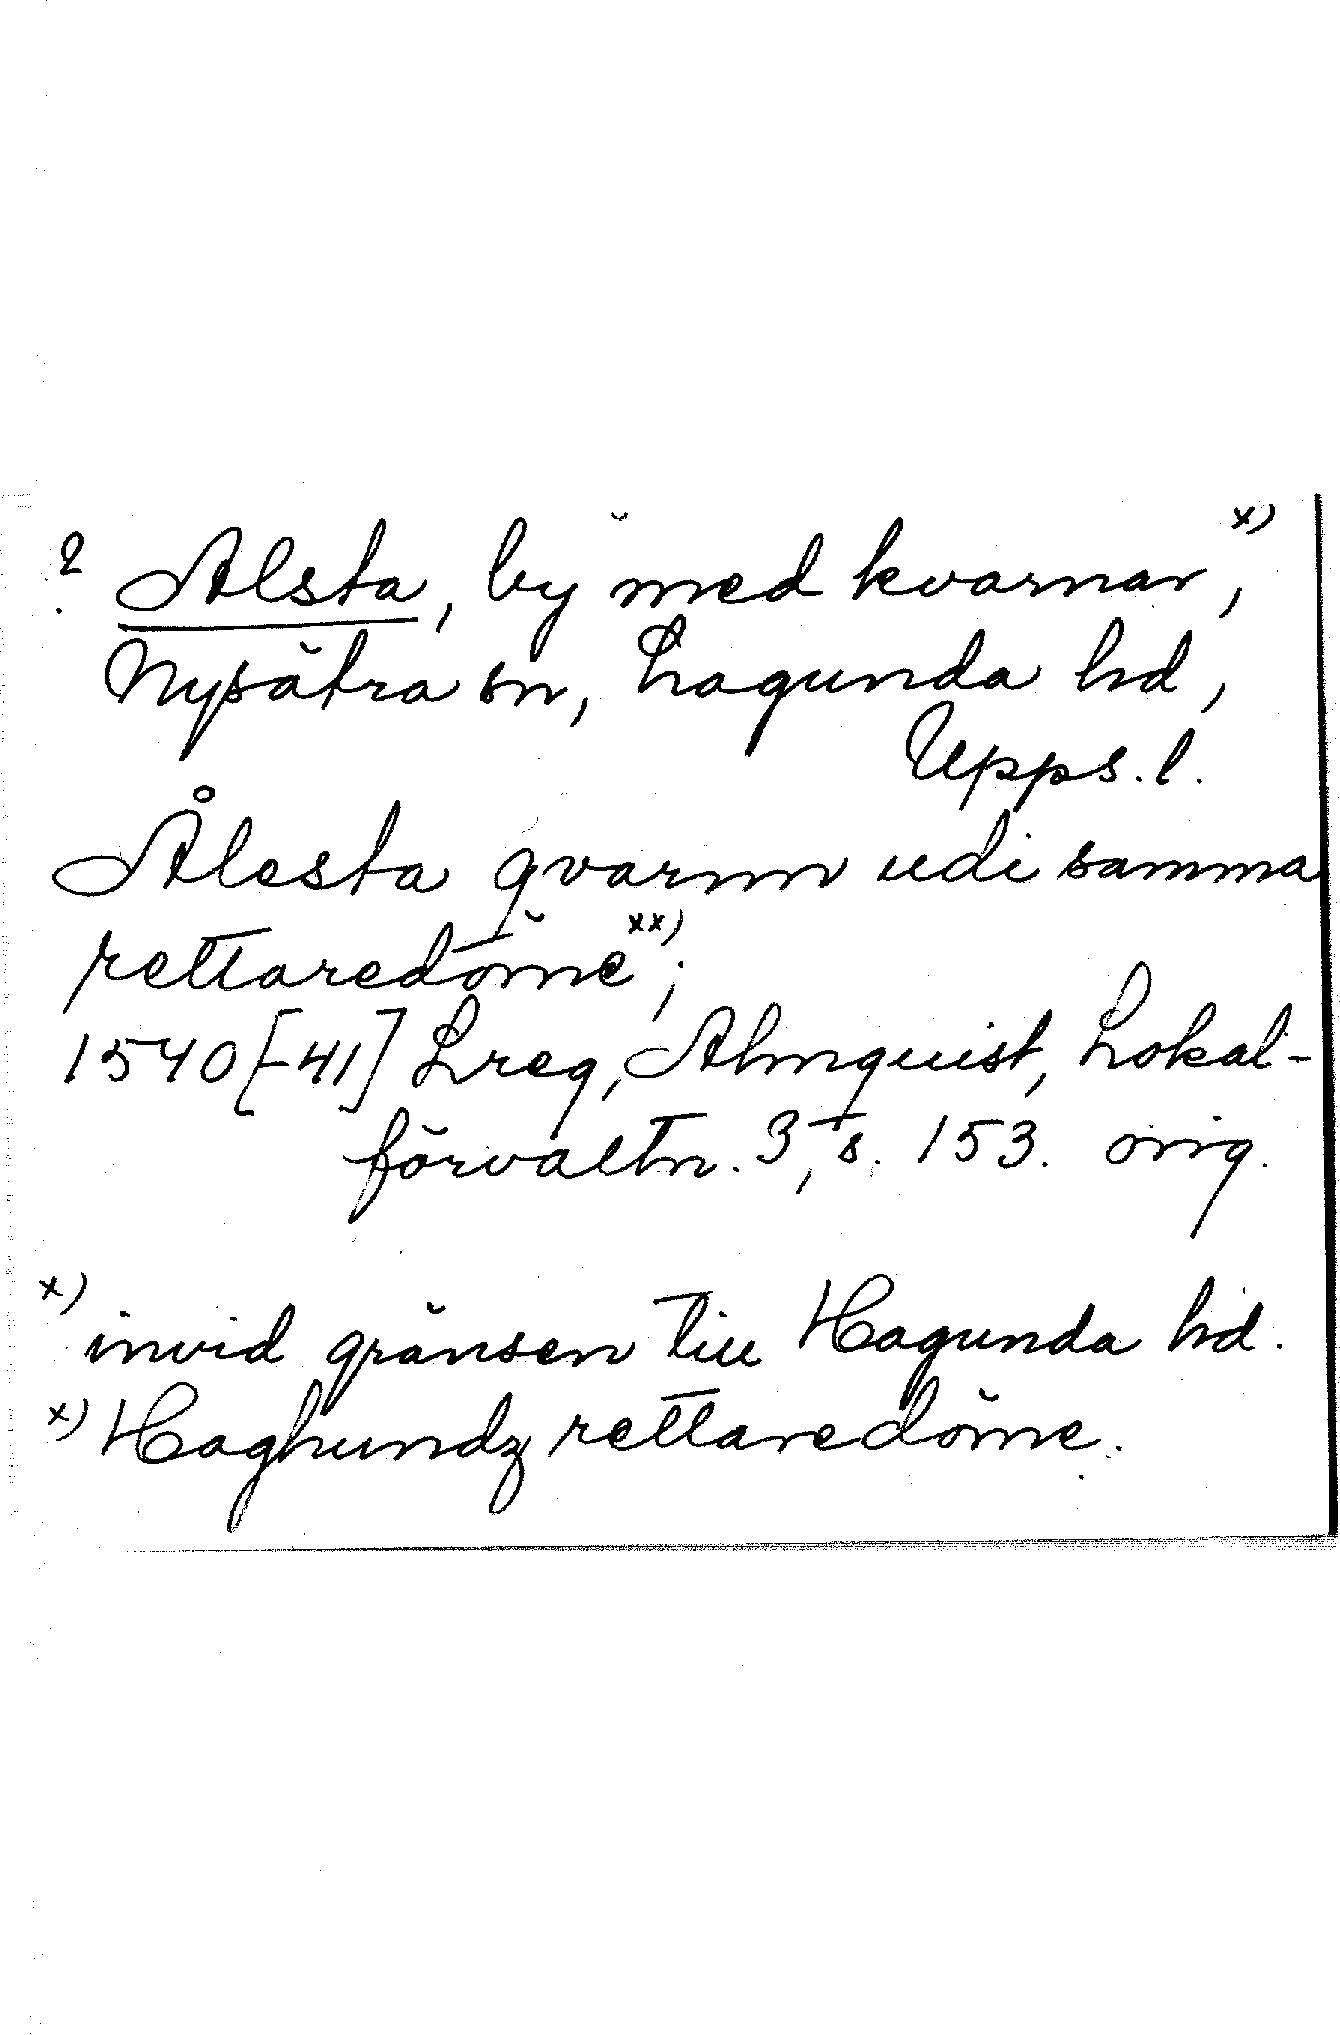 ? Alsta, by med kvarnar x),
Nysätra sn, Lagunda hd,
Upps. l.
Ålesta qvarnn udi samma
rettaredöme xx);
1540[-41] Lreg, Almquist, Lokal-
förvaltn. 3, s. 153. orig.
x) invid gränsen till Hagunda hd.
x) Haghundz rettaredöme.